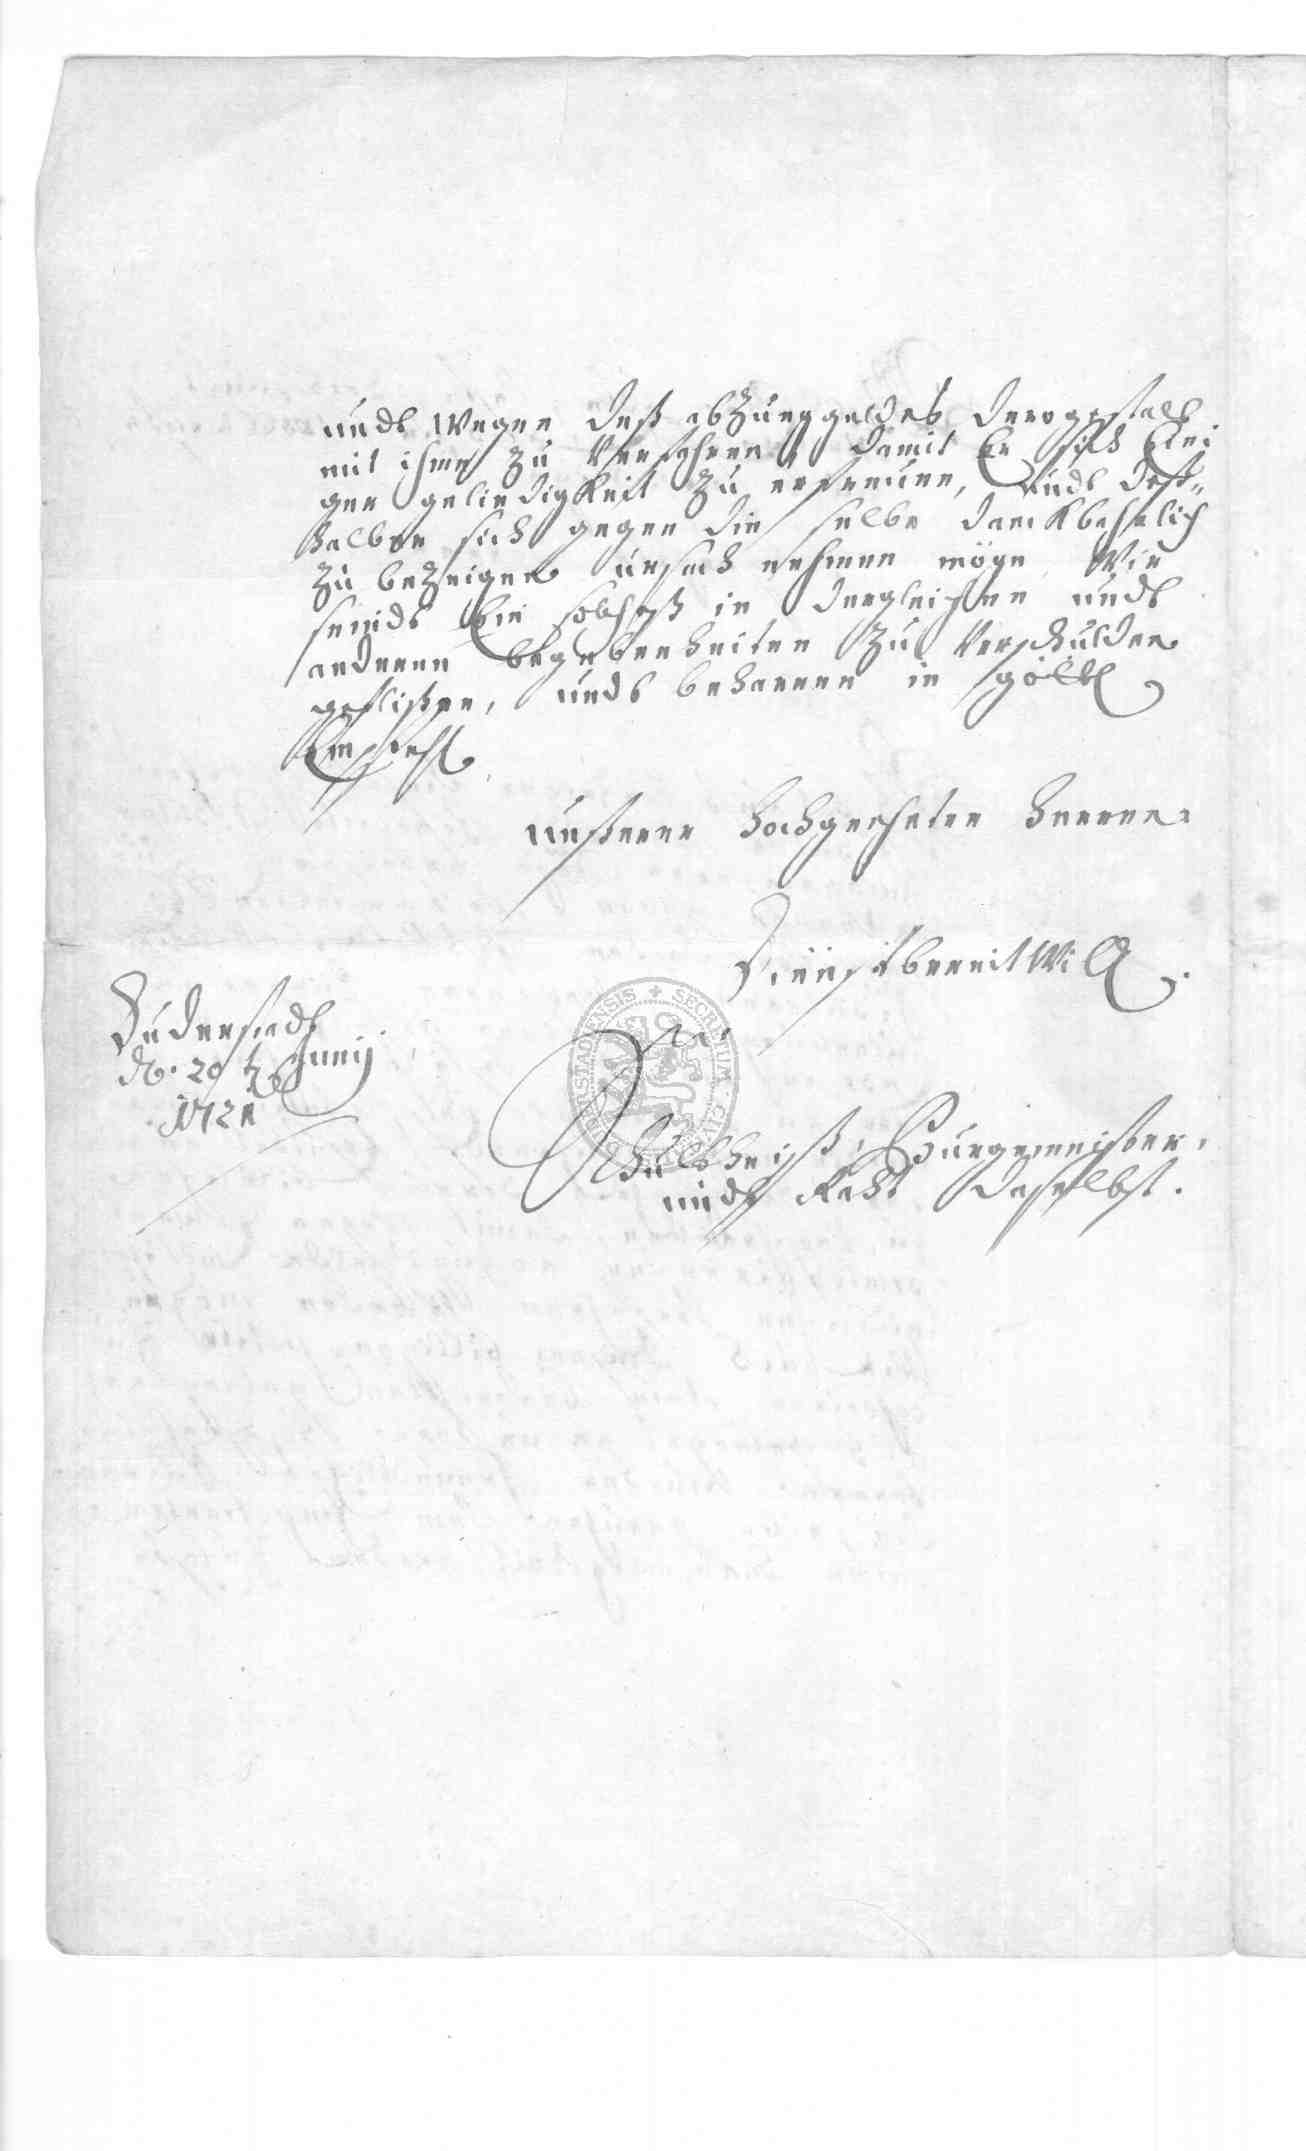 undt wegen deß abZuggeldes derogestalt
mit ihme Zu Verfahren, damit Er sich Ei
ger gelindigkeit Zu erfreuen, undt deß„
halber sich gegen die selbe danckbahrlich
Zu beZeigen ursach nehmen möge, Wir
seindt Ein solcheß in dergleichen undt
anderen begebenheiten Zu Verschulden
geflißen, undt beharren in göttl
Empfehl.
unßerer hochgeehrten herren
Dienstbereitwill.
Duderstadt
d. 20 t Junij
172
Schultheiß, Burgemeister,
undt Raht daselbst.
DUDERSTADENSIS + SECRETUM CIVI